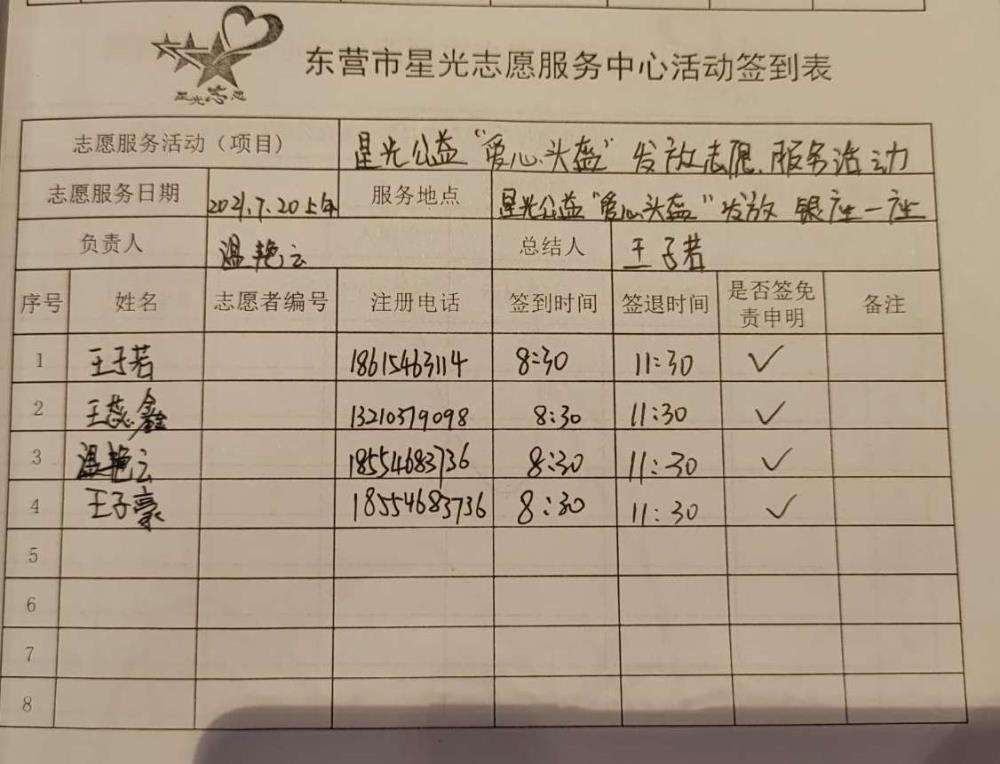 星光志愿
东营市星光志愿服务中心活动签到表
志愿服务活动（项目） 星光公益“爱心头盔”发放志愿服务活动
志愿服务日期 2021.7.20上午 服务地点 星光公益“爱心头盔”发放 银座一座
负责人 温艳云 总结人 王子若
序号 姓名 志愿者编号 注册电话 签到时间 签退时间 是否签免责申明 备注
1 王子若 18615463114 8:30 11:30 ✓
2 王蕊鑫 13210379098 8:30 11:30 ✓
3 温艳云 18554683736 8:30 11:30 ✓
4 王子豪 18554683736 8:30 11:30 ✓
5
6
7
8